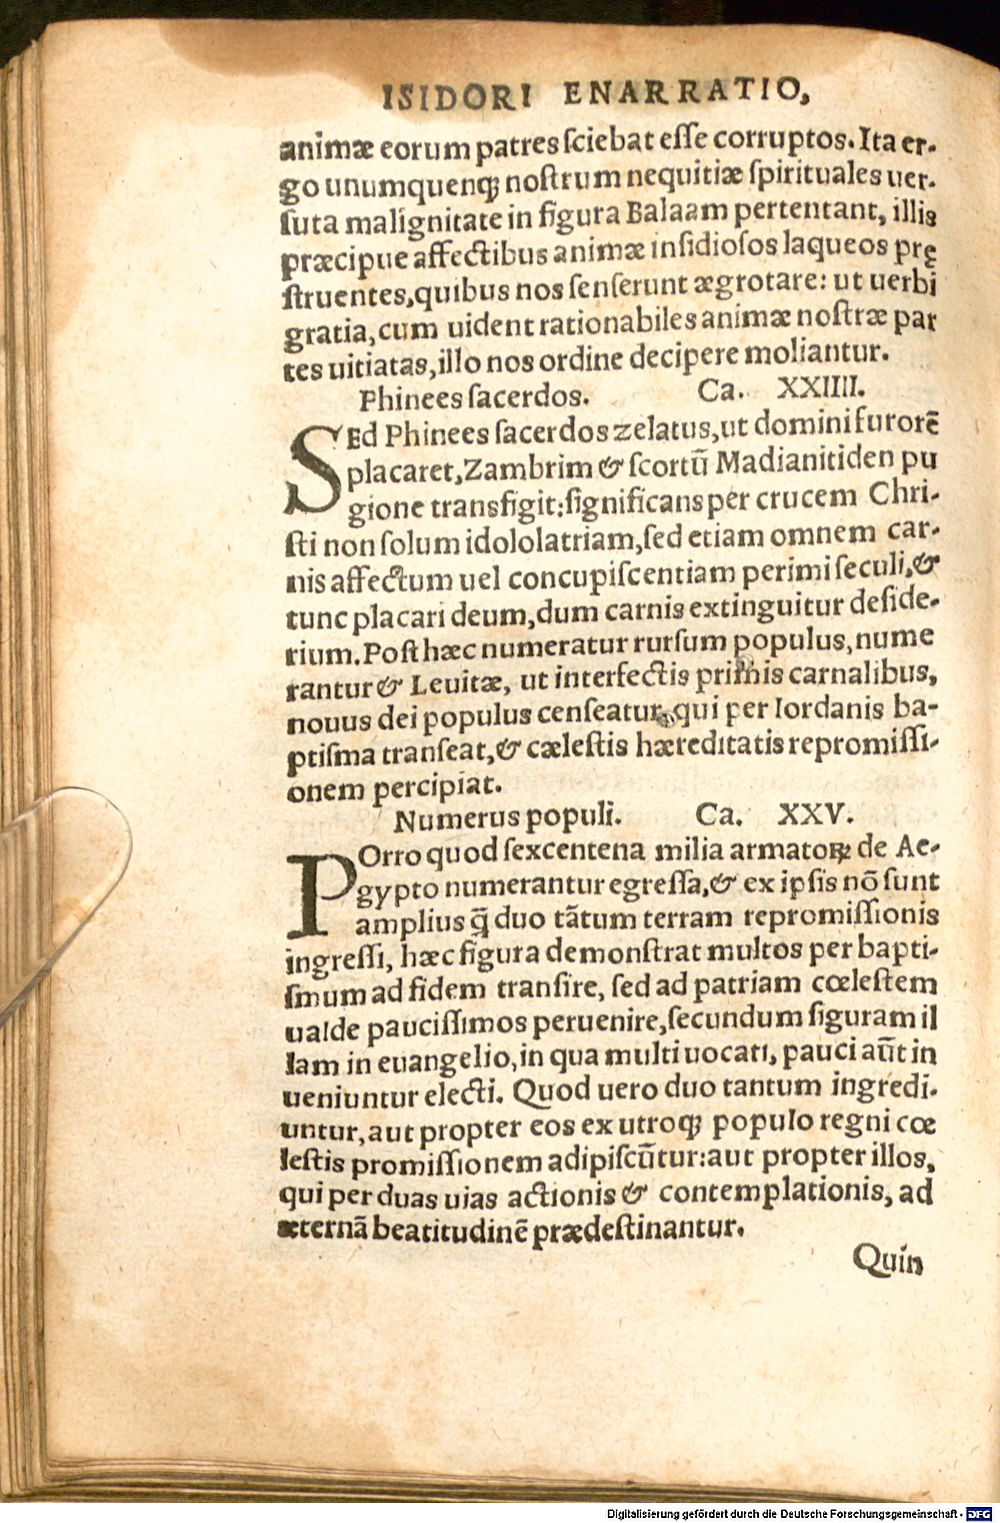 ISIDORI ENARRATIO,
animæ eorum patres ſciebat eſſe corruptos. Ita er-
go unumquenqꝫ noſtrum nequitiæ ſpirituales uer-
ſuta malignitate in figura Balaam pertentant, illis
præcipue affectibus animæ inſidioſos laqueos prę
ſtruentes, quibus nos ſenſerunt ægrotare: ut uerbi
gratia, cum uident rationabiles animæ noſtræ par
tes uitiatas, illo nos ordine decipere moliantur.
Phinees ſacerdos. Ca. XXIIII.
SEd Phinees ſacerdos zelatus, ut domini furorẽ
placaret, Zambrim & ſcortũ Madianitiden pu
gione transfigit: ſignificans per crucem Chri-
ſti non ſolum idololatriam, ſed etiam omnem car-
nis affectum uel concupiſcentiam perimi ſeculi, &
tunc placari deum, dum carnis extinguitur deſide-
rium. Poſt hæc numeratur rurſum populus, nume
rantur & Leuitæ, ut interfectis primis carnalibus,
nouus dei populus cenſeatur, qui per Iordanis ba-
ptiſma tranſeat, & cæleſtis hæreditatis repromiſſi-
onem percipiat.
Numerus populi. Ca. XXV.
POrro quod ſexcentena milia armatoꝝ de Ae-
gypto numerantur egreſſa, & ex ipſis nõ ſunt
amplius q̃ duo tãtum terram repromiſſionis
ingreſſi, hæc figura demonſtrat multos per bapti-
ſmum ad fidem tranſire, ſed ad patriam cœleſtem
ualde pauciſſimos peruenire, ſecundum figuram il
lam in euangelio, in qua multi uocati, pauci aũt in
ueniuntur electi. Quod uero duo tantum ingredi-
untur, aut propter eos ex utroqꝫ populo regni cœ
leſtis promiſſionem adipiſcũtur: aut propter illos,
qui per duas uias actionis & contemplationis, ad
æternã beatitudinẽ prædeſtinantur.
Quin
Digitalisierung gefördert durch die Deutsche Forschungsgemeinschaft - DFG